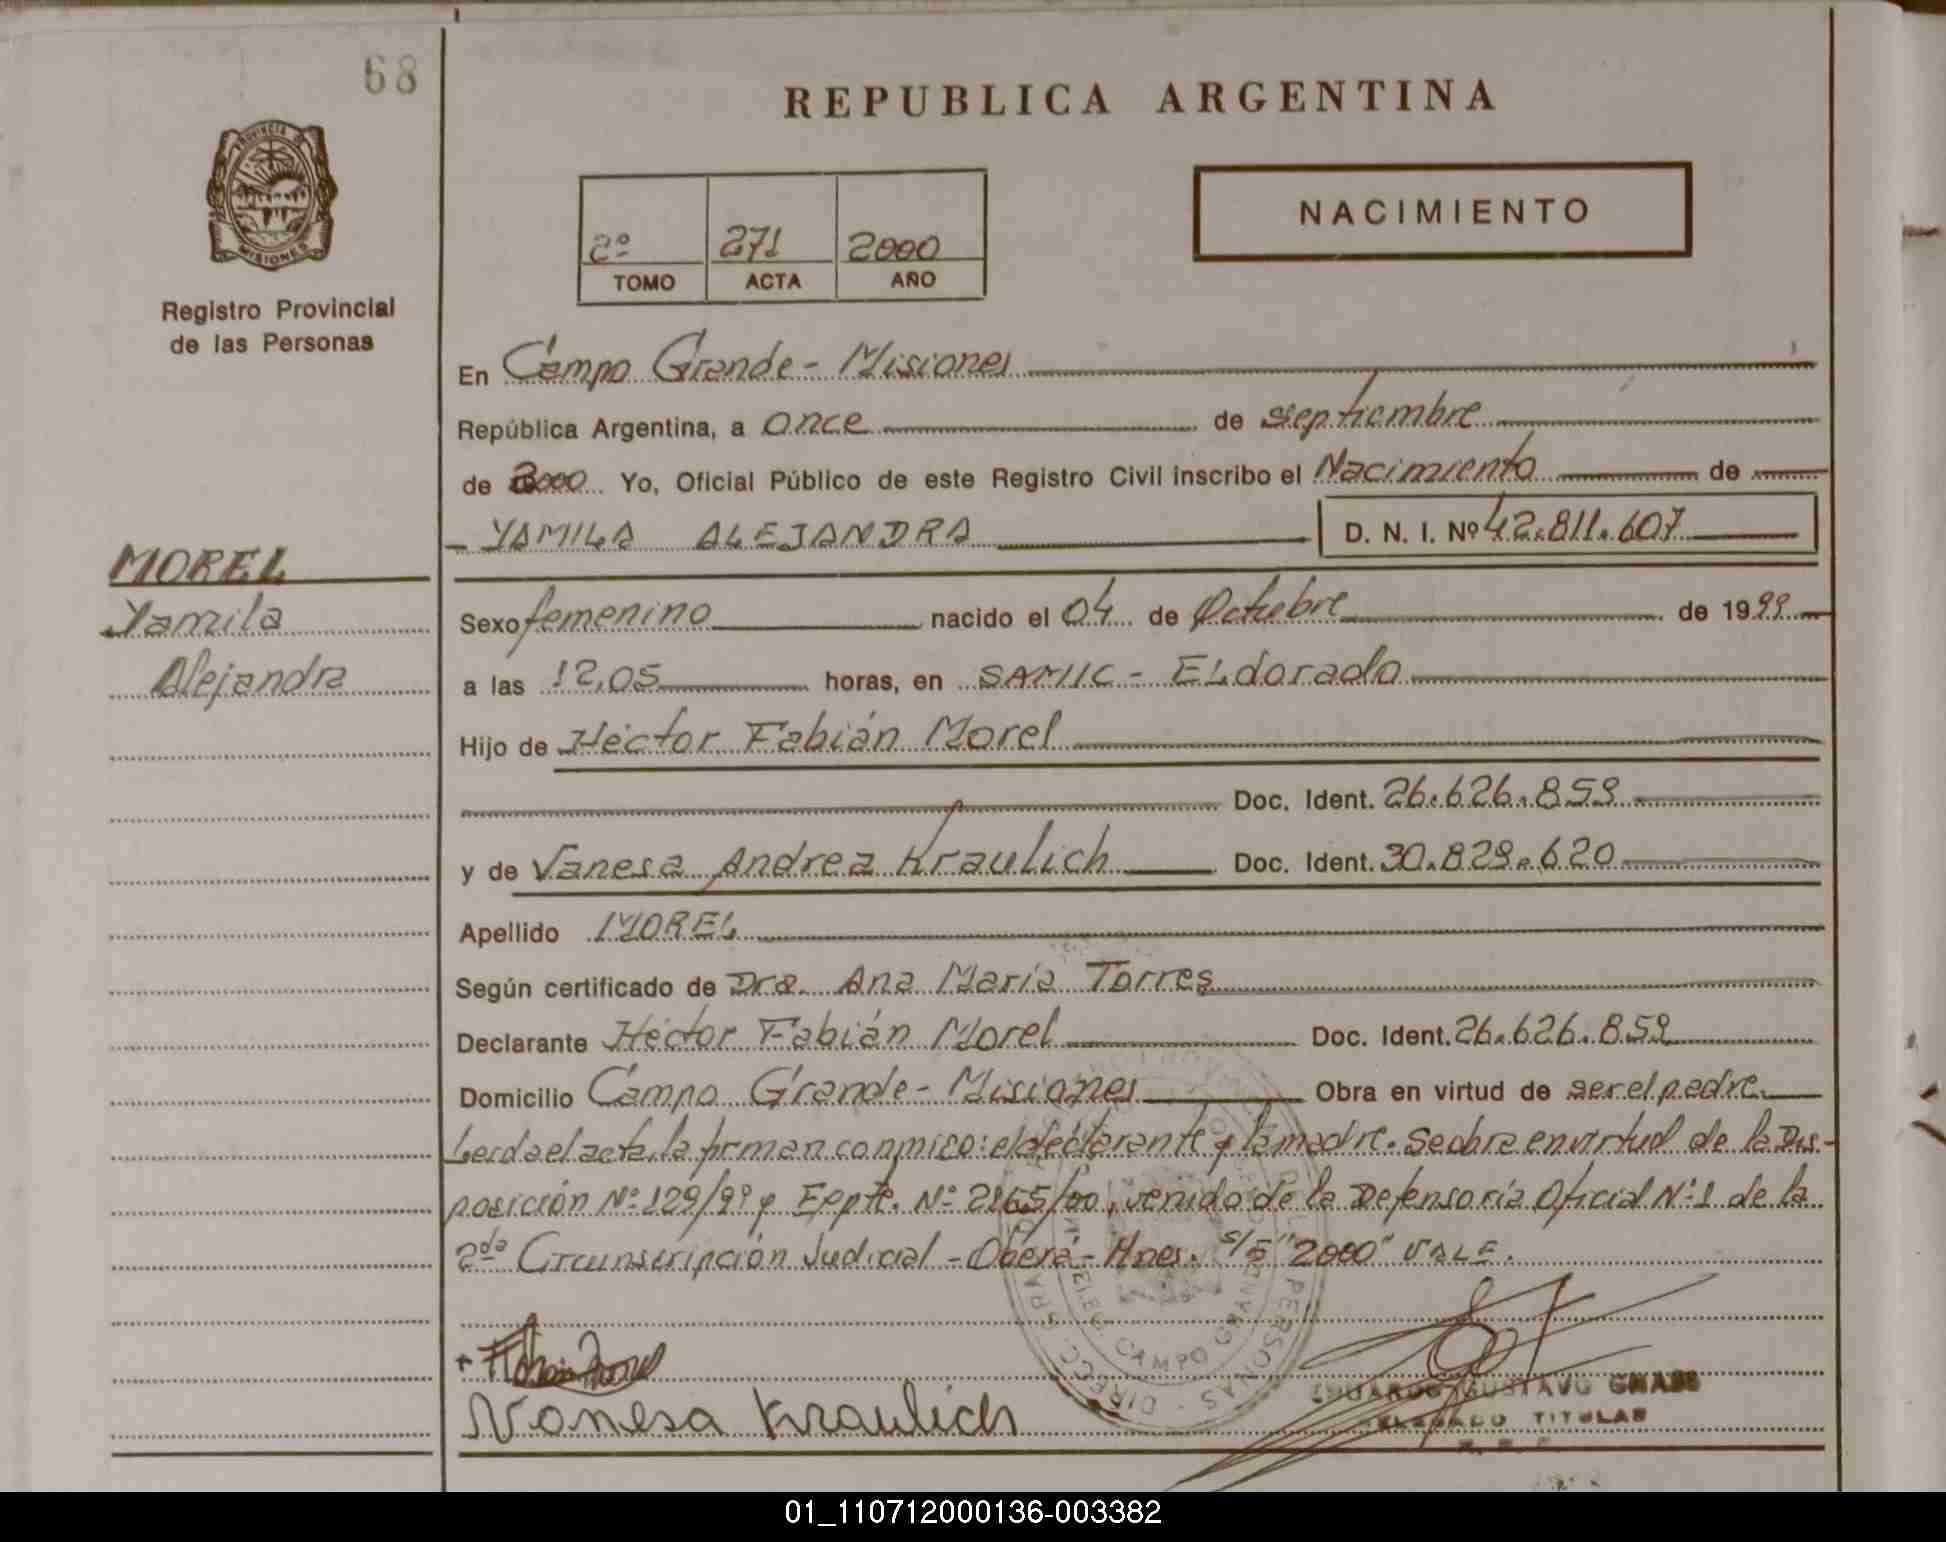 68
REPUBLICA ARGENTINA
PROVINCIA DE
MISIONES
Registro Provincial
de las Personas
2º 271 2000
TOMO ACTA AÑO
NACIMIENTO
En Campo Grande - Misiones
República Argentina, a once de septiembre
de 2000 Yo, Oficial Público de este Registro Civil inscribo el Nacimiento de
YAMILA ALEJANDRA D. N. I. Nº 42.811.607
MOREL
Yamila
Alejandra
Sexo femenino nacido el 04 de Octubre de 1999
a las 12,05 horas, en SAMIC - ELdorado
Hijo de Héctor Fabián Morel
Doc. Ident. 26.626.859
y de Vanesa Andrea Kraulich Doc. Ident. 30.829.620
Apellido MOREL
Según certificado de Dra. Ana María Torres
Declarante Héctor Fabián Morel Doc. Ident. 26.626.859
Domicilio Campo Grande - Misiones Obra en virtud de ser el padre.
Leída el acta, la firman conmigo: el declarante y la madre. Se obra en virtud de la Dis-
posición Nº 129/99 y Expte. Nº 2165/00, venido de la Defensoría Oficial Nº 1 de la
2da Circunscripción Judicial - Oberá - Mnes. s/E "2000" VALE.
Vanesa Kraulich
EDUARDO GUSTAVO
DELEGADO TITULAR
DIRECC. GRAL. DEL PERSONAS
CAMPO GRANDE
01_110712000136-003382